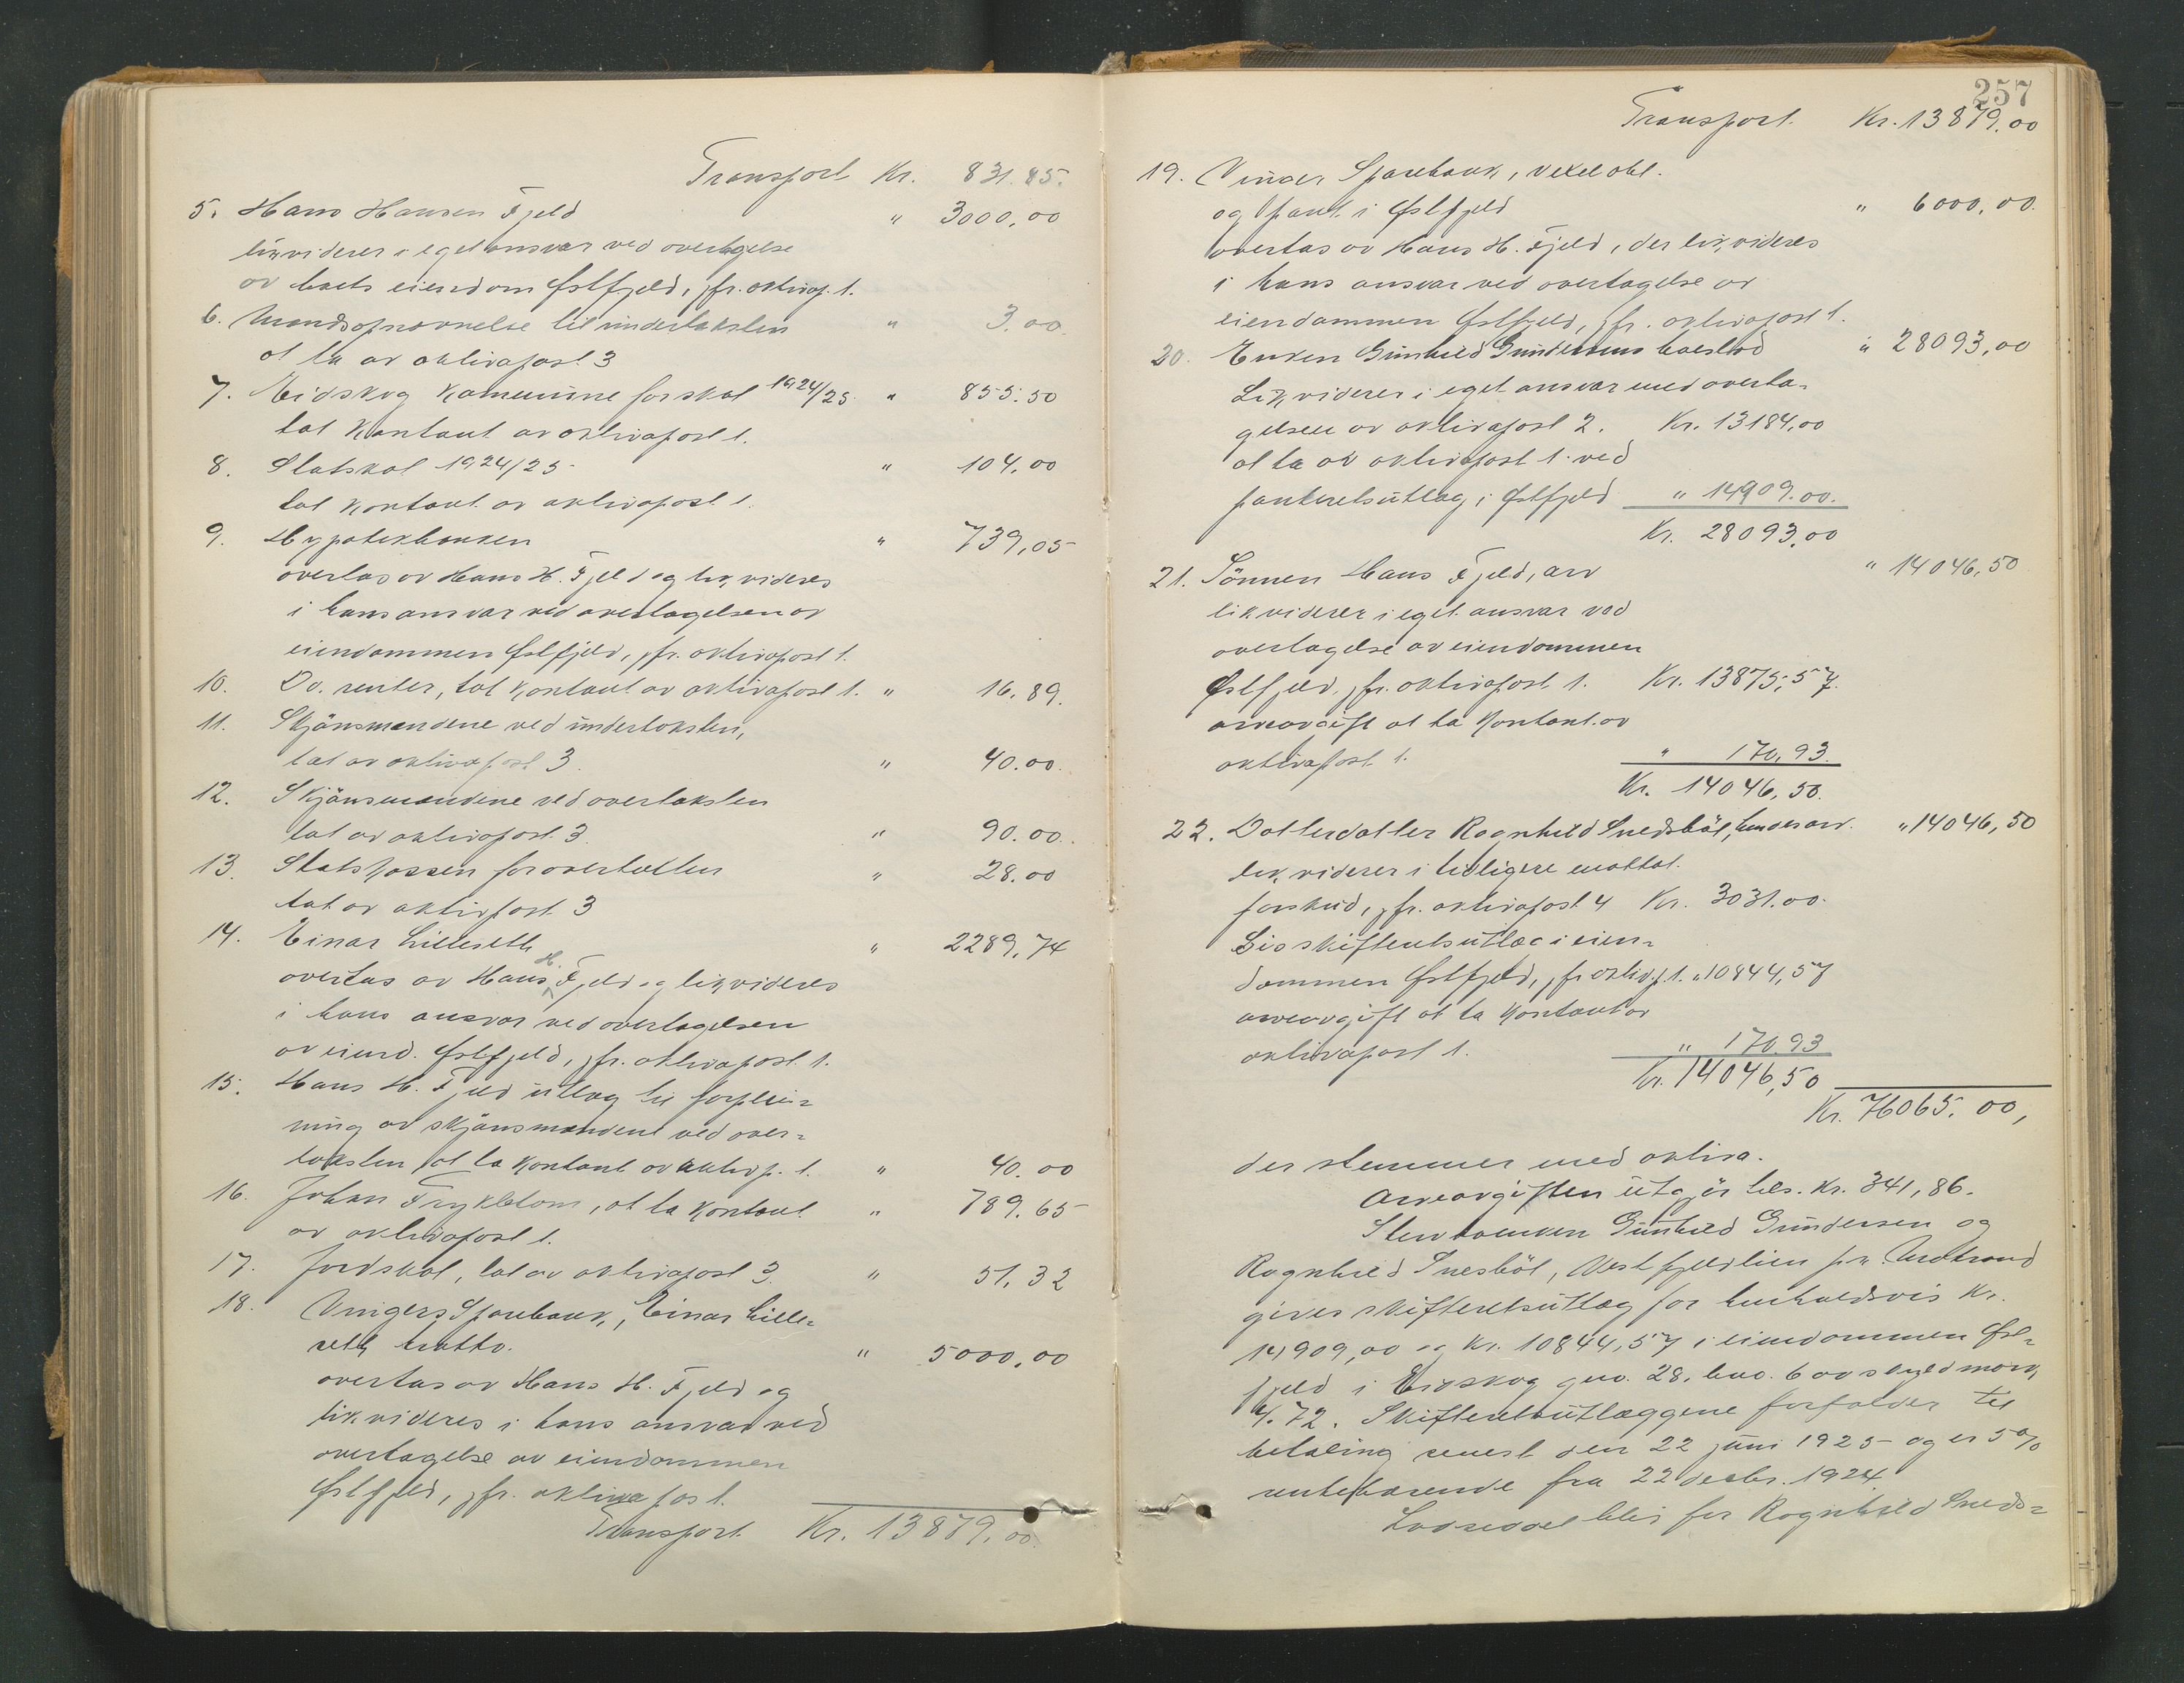 Transport Kr. 831.85.
5. Hans Hansen Fjeld " 3000,00
likviderer i eget ansvar ved overtagelse
av boets eiendom Østfjeld, jfr. aktivap. 1.
6. Mandsopnævnelse til undertaksten " 3.00.
at ta av aktivapost 3
7. Eidskog kommune for skat 1924/25 " 855.50
tat kontant av aktivapost 1.
8. Statskat 1924/25 " 104.00
tat kontant av aktivapost 1.
9. Hypotekbanken " 739,05
overtas av Hans H. Fjeld og likvideres
i hans ansvar ved overtagelsen av
eiendommen Østfjeld, jfr. aktivapost 1.
10. Do. renter, tat kontant av aktivapost 1. " 16.89.
11. Skjönsmændene ved undertaksten,
tat av aktivapost 3 " 40.00.
12. Skjönsmændene ved overtaksten
tat av aktivapost 3. " 90.00.
13. Statskassen for overtaksten " 28.00
tat av aktivpost 3
14. Einar Lilleseth " 2289,74
overtas av Hans H. Fjeld og likvideres
i hans ansvar ved overtagelsen
av eiend. Østfjeld, jfr. aktivapost 1.
15. Hans H. Fjeld utlæg til forplei=
ning av skjönsmændene ved over=
taksten, at ta kontant av aktivp. 1. " 40.00
16. Johan Trykletom, at ta kontant " 789.65
av aktivapost 1.
17. Jordskat, tat av aktivapost 3. " 51.32
18. Vingers Sparebank, Einar Lille=
seth " 5000,00
overtas av Hans H. Fjeld og
likvideres i hans ansvar ved
overtagelse av eiendommen
Østfjeld, jfr. aktivapost.
Transport Kr. 13879,00.
257
Transport. Kr. 13879.00
19. Vinger Sparebank, vexelobl.
og pant i Østfjeld " 6000,00.
overtas av Hans H. Fjeld, der likvideres
i hans ansvar ved overtagelse av
eiendommen Østfjeld, jfr. aktivapost 1.
20. Enken Gunhild Gundersens boeslod " 28093,00
Likviderer i eget ansvar med overta=
gelsen av aktivapost 2. Kr. 13184,00
at ta av aktivapost 1 ved
panteretsutlæg i Østfjeld " 14909.00.
Kr. 28093,00
21. Sönnen Hans Fjeld, arv " 14046,50
likviderer i eget ansvar ved
overtagelse av eiendommen
Østfjeld, jfr. aktivapost 1. Kr. 13875,57.
arveavgift at ta kontant av
aktivapost 1. " 170,93.
Kr. 14046,50.
22. Datterdatter Ragnhild Snedsböl, hendes arv. " 14046,50
likviderer i tidligere mottat.
forskud, jfr. aktivapost 4 Kr. 3031.00.
Gis skifteretsutlæg i eien=
dommen Østfjeld, jfr aktivp. 1. " 10844,57
arveavgift at ta kontant av
aktivapost 1. " 170.93
Kr. 14046,50
Kr. 76065.00,
der stemmer med aktiva.
Arveavgiften utgjör tils. Kr. 341,86.
Gunhild Gundersen og
Ragnhild Snesböl, Vestfjeldlien pr. Matrand
gives skifteretsutlæg for henholdsvis Kr.
14909,00 og Kr. 10844,57 i eiendommen Øst=
fjeld i Eidskog gno. 28. bno. 6 av skyldmark
4.72. Skifteretsutlæggene forfalder til
betaling senest den 22 juni 1925 og er 5%
rentebærende fra 22 decbr. 1924.
blir for Ragnhild Sneds=